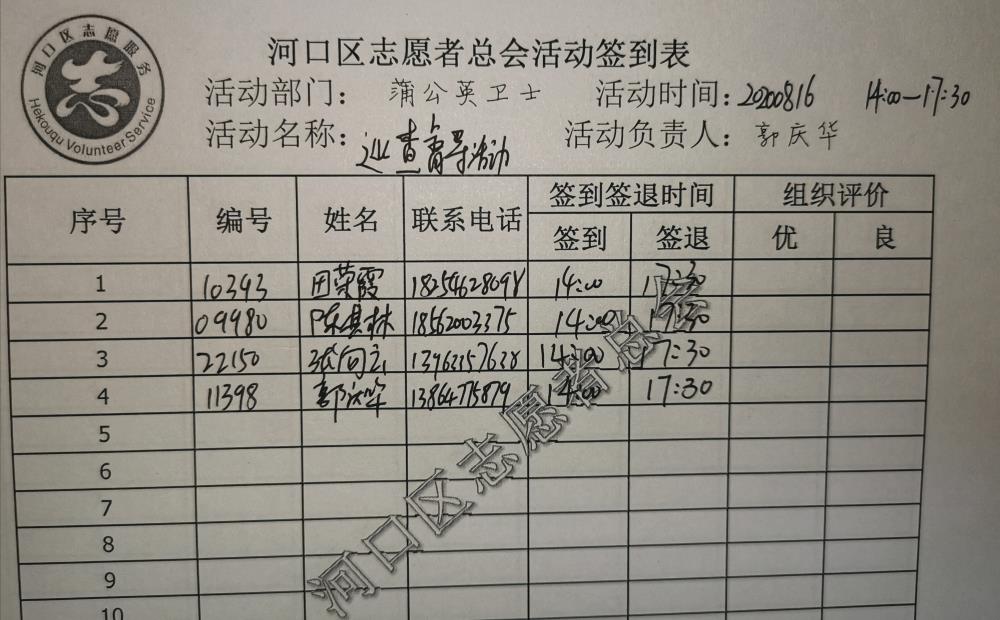 河口区志愿服务
Hekouqu Volunteer Service
河口区志愿者总会活动签到表
活动部门： 蒲公英卫士 活动时间：20200816 14:00—17:30
活动名称： 巡查督导活动 活动负责人：郭庆华
序号 编号 姓名 联系电话 签到签退时间 组织评价
签到 签退 优 良
1 10343 田荣霞 18254628098 14:00 17:30
2 09980 陈其林 18562003375 14:00 17:30
3 22150 张向云 14:00 17:30
4 11398 郭庆华 13864775879 14:00 17:30
5
6
7
8
9
10
河口区志愿者总会